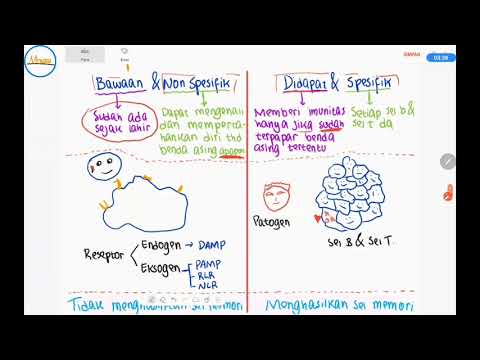 Bawaan & Non Spesifik
Sudah ada
sejak lahir
Dapat mengenali
dan memperta-
hankan diri thd
benda asing apapun
Didapat & Spesifik
Memberi imunitas
hanya jika sudah
terpapar benda
asing tertentu
Setiap sel B &
sel T da
Reseptor
Endogen → DAMP
Eksogen
PAMP
RLR
NLR
Patogen
Sel B & Sel T.
Tidak menghasilkan sel memori
Menghasilkan sel memori